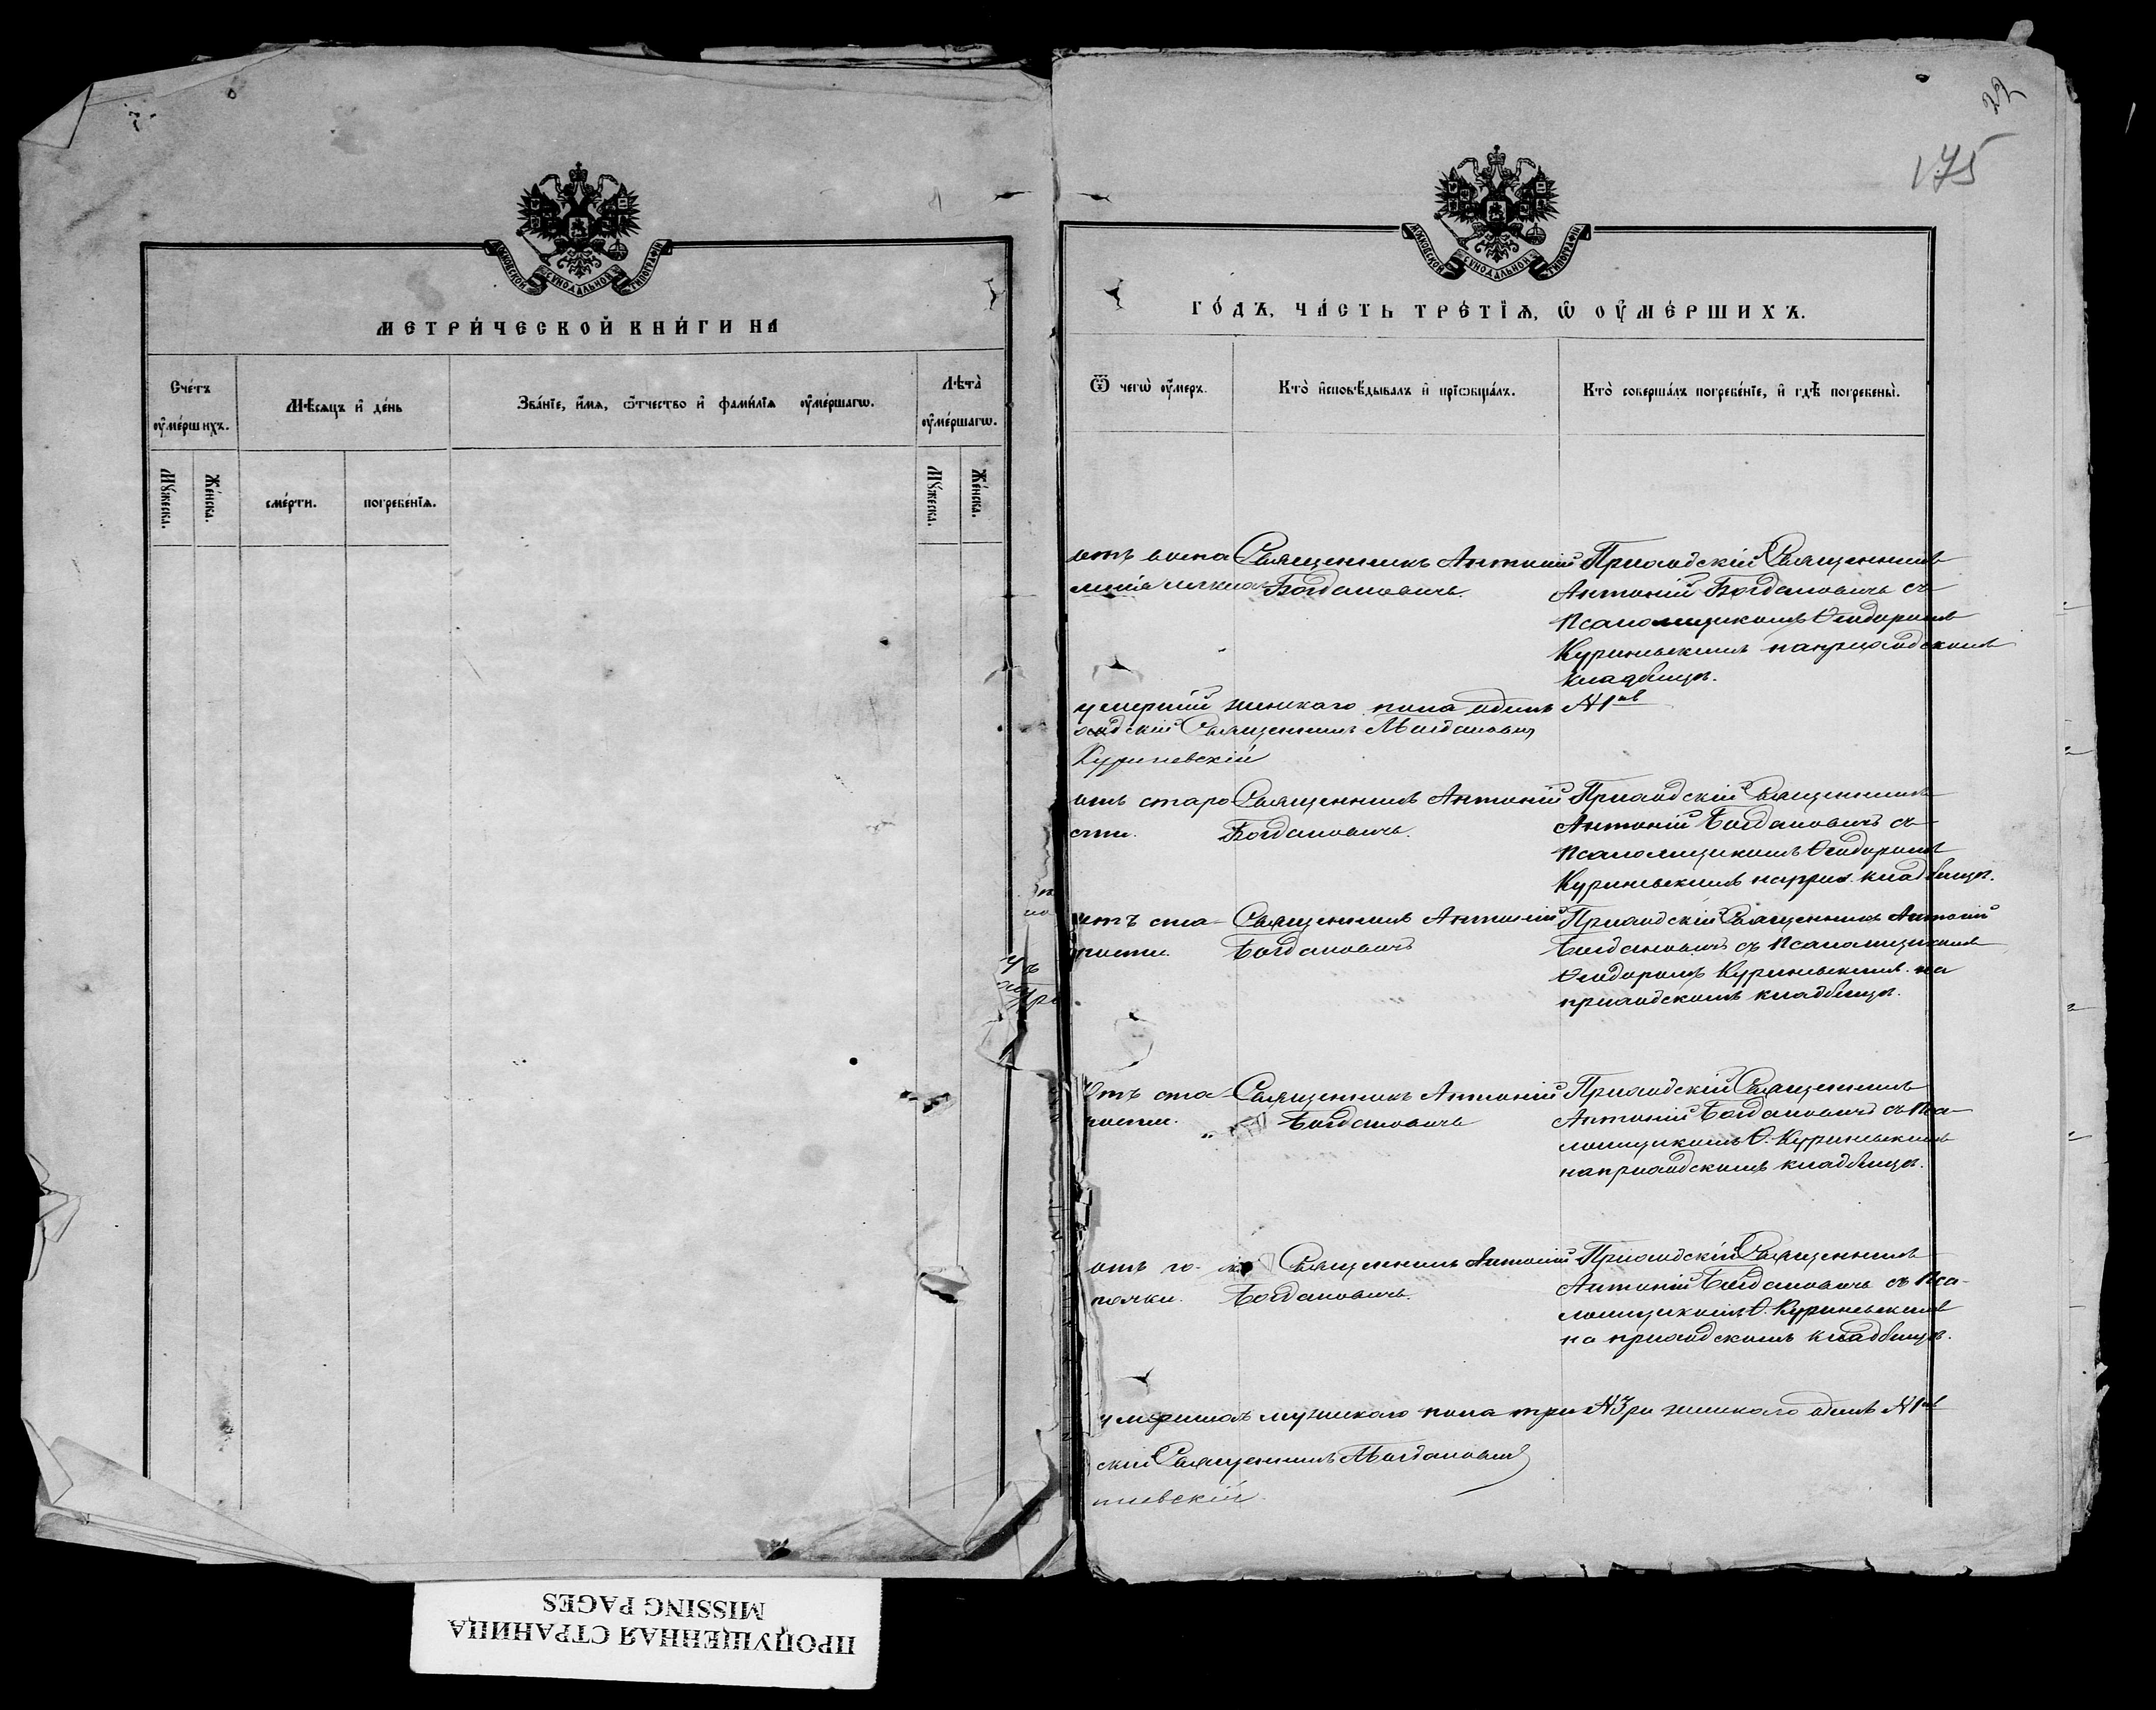 22
175
МОСКОВСКОЙ СУНОДАЛЬНОЙ ТИПОГРАФІИ
МЕТРИ́ЧЕСКОЙ КНИ́ГИ НА
Сче́тъ ᲂу҆ме́ршихъ.
Мѣ́сѧцъ и҆ де́нь
Зва́нїе, и҆́мѧ, ѻ҆́тчество и҆ фамі́лїѧ ᲂу҆ме́ршагѡ.
Лѣта̀ ᲂу҆ме́ршагѡ.
Мꙋ́жеска.
Же́нска.
сме́рти.
погребе́нїѧ.
Мꙋ́жеска.
Же́нска.
МОСКОВСКОЙ СУНОДАЛЬНОЙ ТИПОГРАФІИ
ГО́ДЪ, ЧА́СТЬ ТРЕ́ТЇѦ, Ѡ҆ ОУ҆МЕ́РШИХЪ.
Ѿ чегѡ̀ ᲂу҆́меръ.
Кто̀ и҆сповѣ́дывалъ и҆ прїѡбща́лъ.
Кто̀ соверша́лъ погребе́нїе, и҆ гдѣ̀ погребены̀.
отъ воспа
ленія
Священникъ Антоній
Богдановичъ.
Приходскій Священникъ
Антоній Богдановичъ съ
Псаломщикомъ Ѳеодоромъ
Куриневскимъ на приходскомъ
кладбищѣ.
умершій женскаго пола одинъ №1
ходскій Священникъ А Богданович
Куриневскій
отъ старо
сти.
Священникъ Антоній
Богдановичъ.
Приходскій Священникъ
Антоній Богдановичъ съ
Псаломщикомъ Ѳеодоромъ
Куриневскимъ на прих. кладбищѣ.
отъ ста
рости.
Священникъ Антоній
Богдановичъ
Приходскій Священникъ Антоній
Богдановичъ съ Псаломщикомъ
Ѳеодоромъ Куриневскимъ на
приходскомъ кладбищѣ.
Отъ ста
рости.
Священникъ Антоній
Богдановичъ
Приходскій Священникъ
Антоній Богдановичъ съ Пса-
ломщикомъ Ѳ. Куриневскимъ
на приходскомъ кладбищѣ.
отъ го-
рячки.
Священникъ Антоній
Богдановичъ.
Приходскій Священникъ
Антоній Богдановичъ съ Пса-
ломщикомъ Ѳ. Куриневскимъ
на приходскомъ кладбищѣ.
умершихъ мужскаго пола три №3 женскаго одинъ №1
скій Священникъ А Богданович
невскій.
ПРОПУЩЕННАЯ СТРАНИЦА
MISSING PAGES